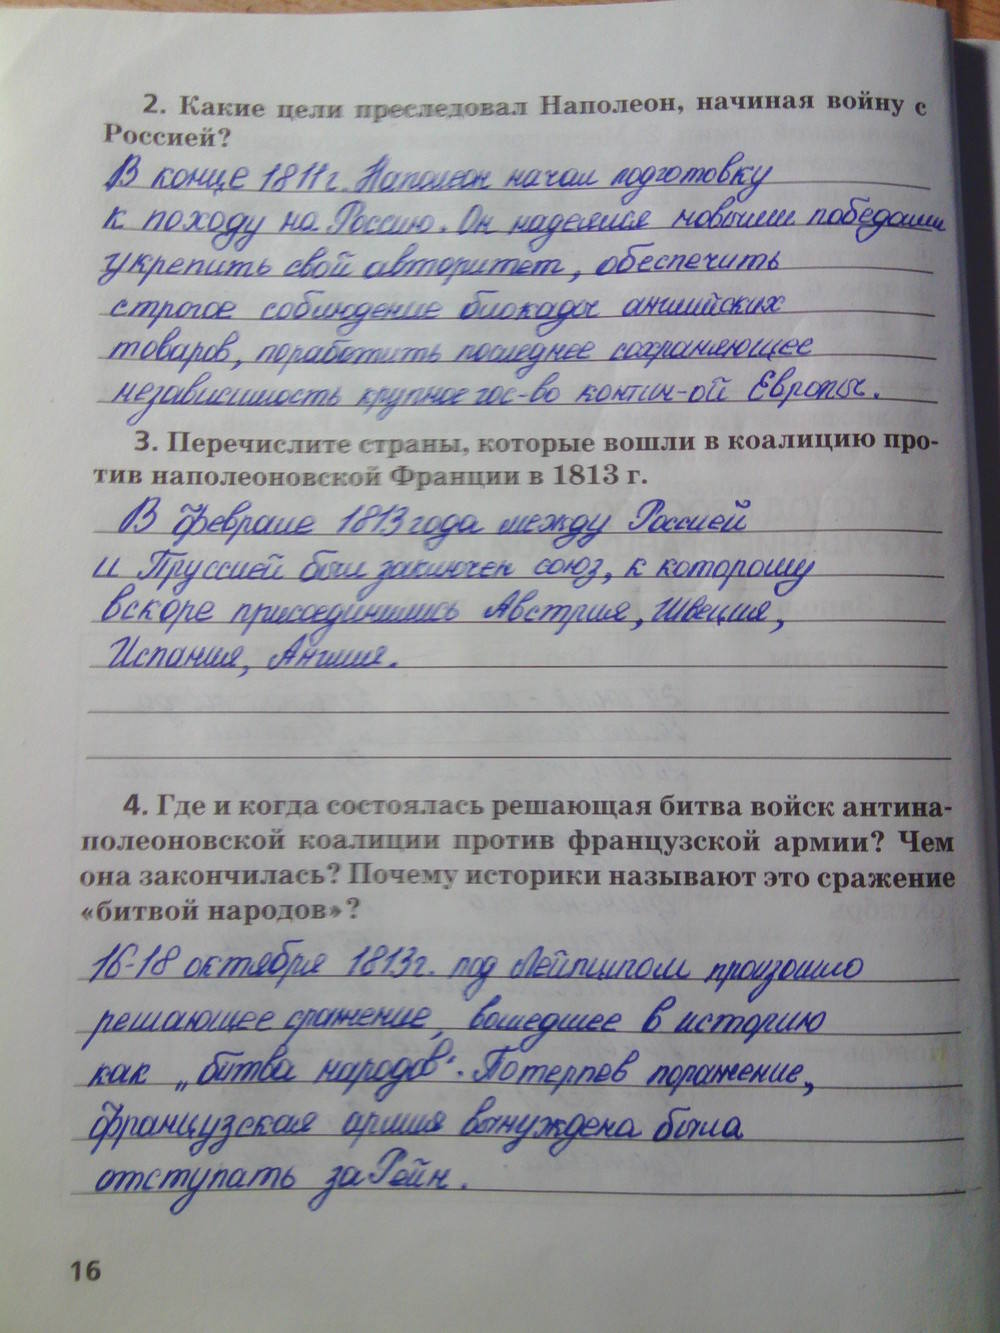 2. Какие цели преследовал Наполеон, начиная войну с
Россией?
В конце 1811 г. Наполеон начал подготовку
к походу на Россию. Он надеялся новыми победами
укрепить свой авторитет, обеспечить
строгое соблюдение блокады английских
товаров, поработить последнее сохраняющее
независимость крупное гос-во контин-ой Европы.
3. Перечислите страны, которые вошли в коалицию про-
тив наполеоновской Франции в 1813 г.
В феврале 1813 года между Россией
и Пруссией был заключен союз, к которому
вскоре присоединились Австрия, Швеция,
Испания, Англия.
4. Где и когда состоялась решающая битва войск антина-
полеоновской коалиции против французской армии? Чем
она закончилась? Почему историки называют это сражение
«битвой народов»?
16-18 октября 1813 г. под Лейпцигом произошло
решающее сражение, вошедшее в историю
как „битва народов". Потерпев поражение,
французская армия вынуждена была
отступать за Рейн.
16